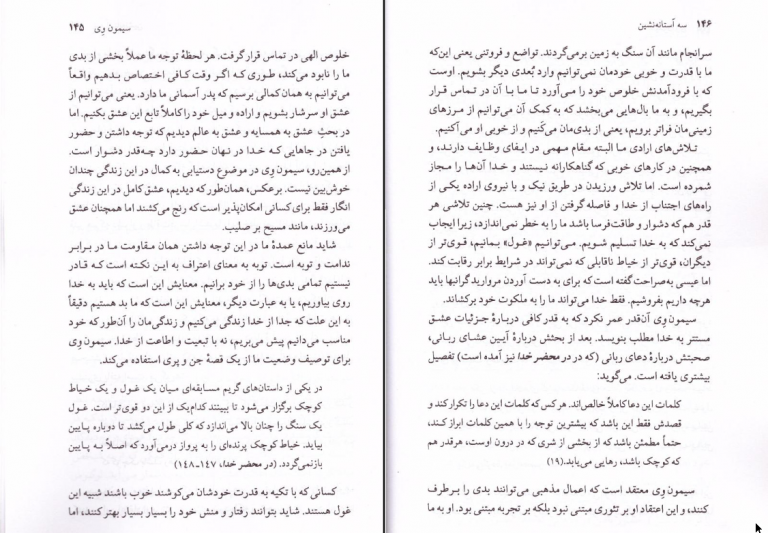 ۱۴۶ سه آستانه‌نشین
سرانجام مانند آن سنگ به زمین برمی‌گردند. تواضع و فروتنی یعنی این‌که
ما با قدرت و خوبی خودمان نمی‌توانیم وارد بُعدی دیگر بشویم. اوست
که با فرودآمدنش خلوص خود را می‌آورد تا ما با آن در تماس قرار
بگیریم، و به ما بال‌هایی می‌بخشد که به کمک آن می‌توانیم از مرزهای
زمینی‌مان فراتر برویم، یعنی از بدی‌مان می‌کَنیم و از خوبی او می‌آکنیم.
تلاش‌های ارادی ما البته مقام مهمی در ایفای وظایف دارند، و
همچنین در کارهای خوبی که گناهکارانه نیستند و خدا آن‌ها را مجاز
شمرده است. اما تلاش ورزیدن در طریق نیک و با نیروی اراده یکی از
راه‌های اجتناب از خدا و فاصله گرفتن از او نیز هست. چنین تلاشی هر
قدر هم که دشوار و طاقت‌فرسا باشد ما را به خطر نمی‌اندازد، زیرا ایجاب
نمی‌کند که به خدا تسلیم شویم. می‌توانیم «غول» بمانیم، قوی‌تر از
دیگران، قوی‌تر از خیاط ناقابلی که نمی‌تواند در شرایط برابر رقابت کند.
اما عیسی به‌صراحت گفته است که برای به دست آوردن مروارید گرانبها باید
هرچه داریم بفروشیم. فقط خدا می‌تواند ما را به ملکوت خود برکشاند.
سیمون وِی آن‌قدر عمر نکرد که به قدر کافی دربارهٔ جزئیات عشق
مستتر به خدا مطلب بنویسد. بعد از بحثش دربارهٔ آیین عشای ربانی،
صحبتش دربارهٔ دعای ربانی (که در در محضر خدا نیز آمده است) تفصیل
بیشتری یافته است. می‌گوید:
کلمات این دعا کاملاً خالص‌اند. هرکس که کلمات این دعا را تکرار کند و
قصدش فقط این باشد که بیشترین توجه را با همین کلمات ابراز کند،
حتماً مطمئن باشد که از بخشی از شری که در درون اوست، هرقدر هم
که کوچک باشد، رهایی می‌یابد.(۱۹)
سیمون وِی معتقد است که اعمال مذهبی می‌توانند بدی را برطرف
کنند، و این اعتقاد او بر تئوری مبتنی نبود بلکه بر تجربه مبتنی بود. او به ما
سیمون وِی ۱۴۵
خلوص الهی در تماس قرار گرفت. هر لحظهٔ توجه ما عملاً بخشی از بدی
ما را نابود می‌کند، طوری که اگر وقت کافی اختصاص بدهیم واقعاً
می‌توانیم به همان کمالی برسیم که پدر آسمانی ما دارد. یعنی می‌توانیم از
عشق او سرشار بشویم و اراده و میل خود را کاملاً تابع این عشق بکنیم. اما
در بحثِ عشق به همسایه و عشق به عالم دیدیم که توجه داشتن و حضور
یافتن در جاهایی که خدا در نهان حضور دارد چه‌قدر دشوار است.
از همین‌رو، سیمون وِی در موضوع دستیابی به کمال در این زندگی چندان
خوش‌بین نیست. برعکس، همان‌طور که دیدیم، عشق کامل در این زندگی
انگار فقط برای کسانی امکان‌پذیر است که رنج می‌کشند اما همچنان عشق
می‌ورزند، مانند مسیح بر صلیب.
شاید مانع عمدهٔ ما در این توجه داشتن همان مقاومت ما در برابر
ندامت و توبه است. توبه به معنای اعتراف به این نکته است که قادر
نیستیم تمامی بدی‌ها را از خود برانیم. معنایش این است که باید به خدا
روی بیاوریم، یا به عبارت دیگر، معنایش این است که ما بد هستیم دقیقاً
به این علت که جدا از خدا زندگی می‌کنیم و زندگی‌مان را آن‌طور که خود
مناسب می‌دانیم پیش می‌بریم، نه با تبعیت و اطاعت از خدا. سیمون وِی
برای توصیف وضعیت ما از یک قصهٔ جن و پری استفاده می‌کند.
در یکی از داستان‌های گریم مسابقه‌ای میان یک غول و یک خیاط
کوچک برگزار می‌شود تا ببینند کدام‌یک از این دو قوی‌تر است. غول
یک سنگ را چنان بالا می‌اندازد که کلی طول می‌کشد تا دوباره پایین
بیاید. خیاط کوچک پرنده‌ای را به پرواز درمی‌آورد که اصلاً به پایین
بازنمی‌گردد. (در محضر خدا، ۱۴۷-۱۴۸)
کسانی که با تکیه به قدرت خودشان می‌کوشند خوب باشند شبیه این
غول هستند. شاید بتوانند رفتار و منش خود را بسیار بسیار بهتر کنند، اما